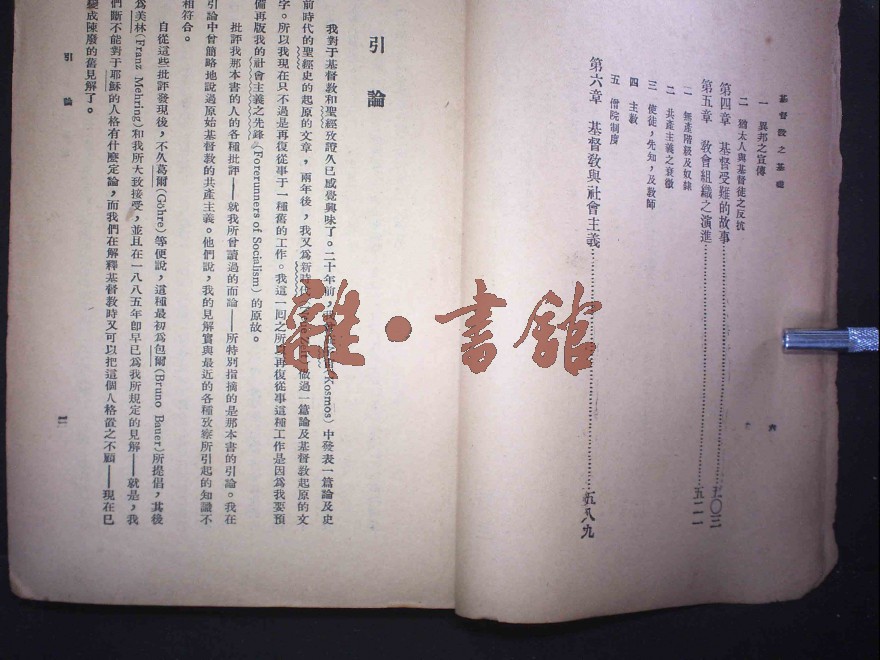 基督敎之基礎
一 異邦之宣傳
二 猶太人與基督徒之反抗
第四章 基督受難的故事……五〇三
第五章 敎會組織之演進……五二一
一 無產階級及奴隸
二 共產主義之衰微
三 使徒，先知，及敎師
四 主敎
五 僧院制度
第六章 基督敎與社會主義……五八九
六
引論
我對于基督敎和聖經攷證久已感覺興味了。二十年前，
(Kosmos) 中發表一篇論及史
前時代的聖經史的起原的文章，兩年後，我又爲新時代
做過一篇論及基督敎起原的文
字。所以我現在只不過是再復從事于一種舊的工作。我這一囘之所
再復從事這種工作是因爲我要預
備再版我的社會主義之先鋒 (Forerunners of Socialism) 的原故。
批評我那本書的人的各種批評——就我所曾讀過的而論——所特別指摘的是那本書的引論。我在
引論中曾簡略地說過原始基督敎的共產主義。他們說，我的見解實與最近的各種攷察所引起的知識不
相符合。
自從這些批評發現後，不久葛爾 (Göhre) 等便說，這種最初爲包爾 (Bruno Bauer) 所提倡，其後
爲美林 (Franz Mehring) 和我所大致接受，並且在一八八五年卽早已爲我所規定的見解——就是，我
們斷不能對于耶穌的人格有什麼定論，而我們在解釋基督敎時又可以把這個人格置之不顧——現在已
變成陳廢的舊見解了。
引論
雜·書館